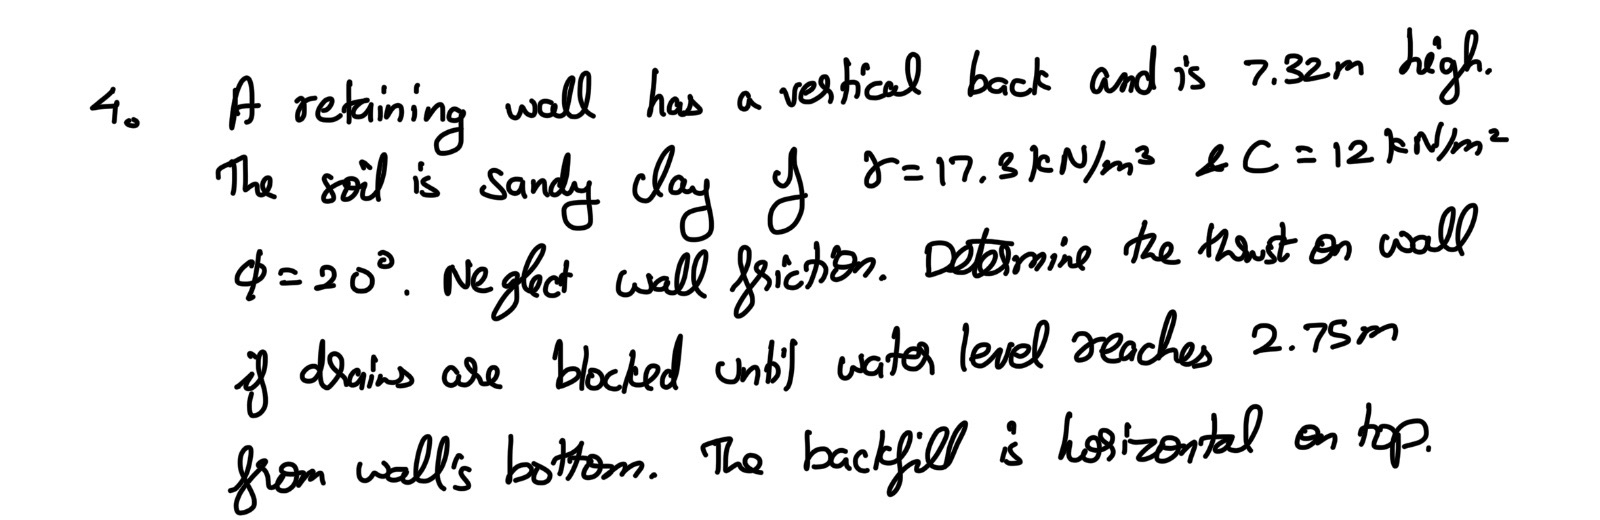 4. A retaining wall has a vertical back and is 7.32m high.
The soil is sandy clay of γ=17.3kN/m³ & C=12kN/m²
ϕ=20°. Neglect wall friction. Determine the thrust on wall
if drains are blocked until water level reaches 2.75m
from wall's bottom. The backfill is horizontal on top.